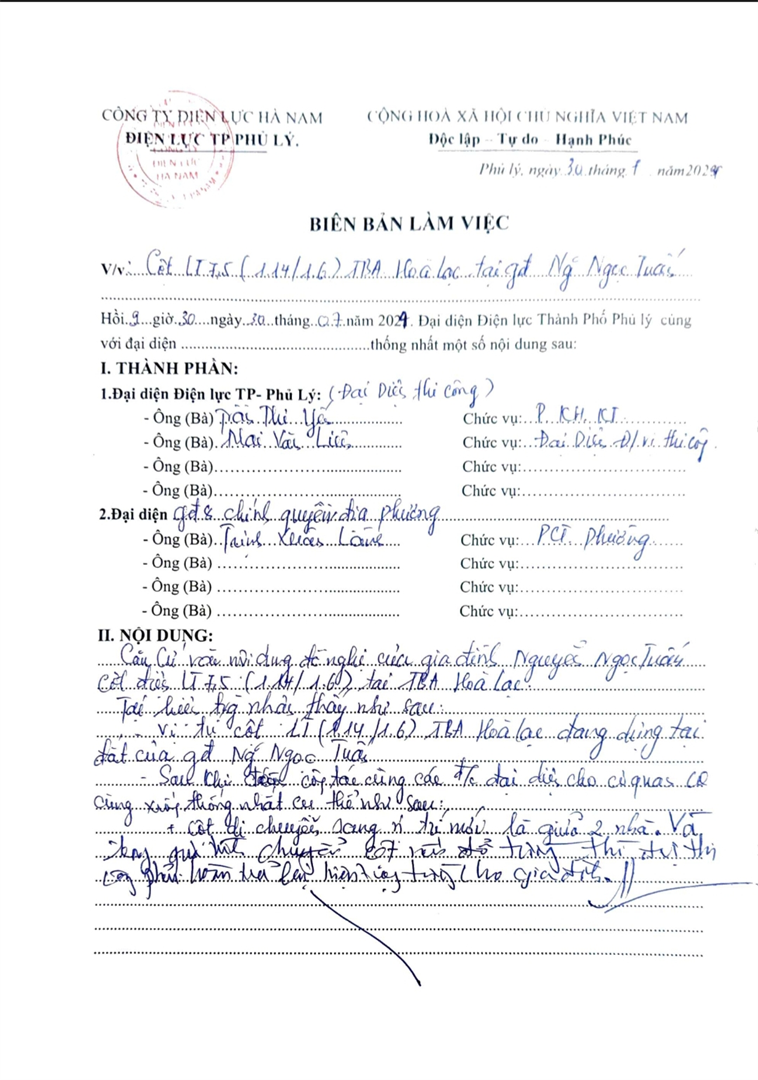 CÔNG TY ĐIỆN LỰC HÀ NAM
ĐIỆN LỰC TP PHỦ LÝ.
CỘNG HOÀ XÃ HỘI CHỦ NGHĨA VIỆT NAM
Độc lập – Tự do – Hạnh Phúc
ĐIỆN LỰC
HÀ NAM
Phủ lý, ngày 30 tháng 7 năm 2024
BIÊN BẢN LÀM VIỆC
V/v: Cột LT 7,5 (1.14/1.6) TBA Hoà Lạc tại gđ Ng Ngọc Tuấn
Hồi 9 giờ 30 ngày 30 tháng 07 năm 2024. Đại diện Điện lực Thành Phố Phủ lý cùng
với đại diện ........ thống nhất một số nội dung sau:
I. THÀNH PHẦN:
1.Đại diện Điện lực TP- Phủ Lý: (Đại Diện thi công)
- Ông (Bà) Thị Chức vụ: P. KH. KT
- Ông (Bà) Mai Văn Chức vụ: Đại Diện Đ/vị thi công
- Ông (Bà) ........ Chức vụ: ........
- Ông (Bà) ........ Chức vụ: ........
2.Đại diện gđ & chính quyền địa phương
- Ông (Bà) Trịnh Xuân Chức vụ: PCT Phường
- Ông (Bà) ........ Chức vụ: ........
- Ông (Bà) ........ Chức vụ: ........
- Ông (Bà) ........ Chức vụ: ........
II. NỘI DUNG:
Căn Cứ vào nội dung đề nghị của gia đình Nguyễn Ngọc Tuấn
Cột điện LT 7,5 (1.14/1.6) tại TBA Hoà Lạc.
Tại hiện trg nhận thấy như sau:
- Vị trí cột LT (1.14/1.6) TBA Hoà Lạc đang dựng tại
đất của gđ Ng Ngọc Tuấn
- Sau khi công tác cùng các đ/c đại diện cho cơ quan
cùng thống nhất cụ thể như sau:
+ Cột di chuyển sang vị trí mới là giữa 2 nhà. Và
trong quá trình chuyển cột nếu đổ tường thì đv thi
công phải hoàn trả lại hiện trạng tường cho gia đình.